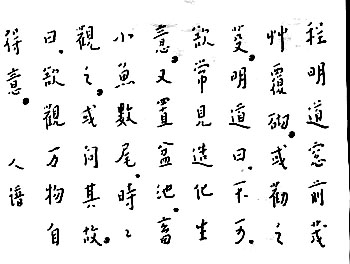 程明道窓前茂
艸覆砌。或勸之
芟。明道曰。不可。
欲常見造化生
意。又置盆池。畜
小魚數尾。時々
觀之。或問其故。
曰。欲觀万物自
得意。 人谱